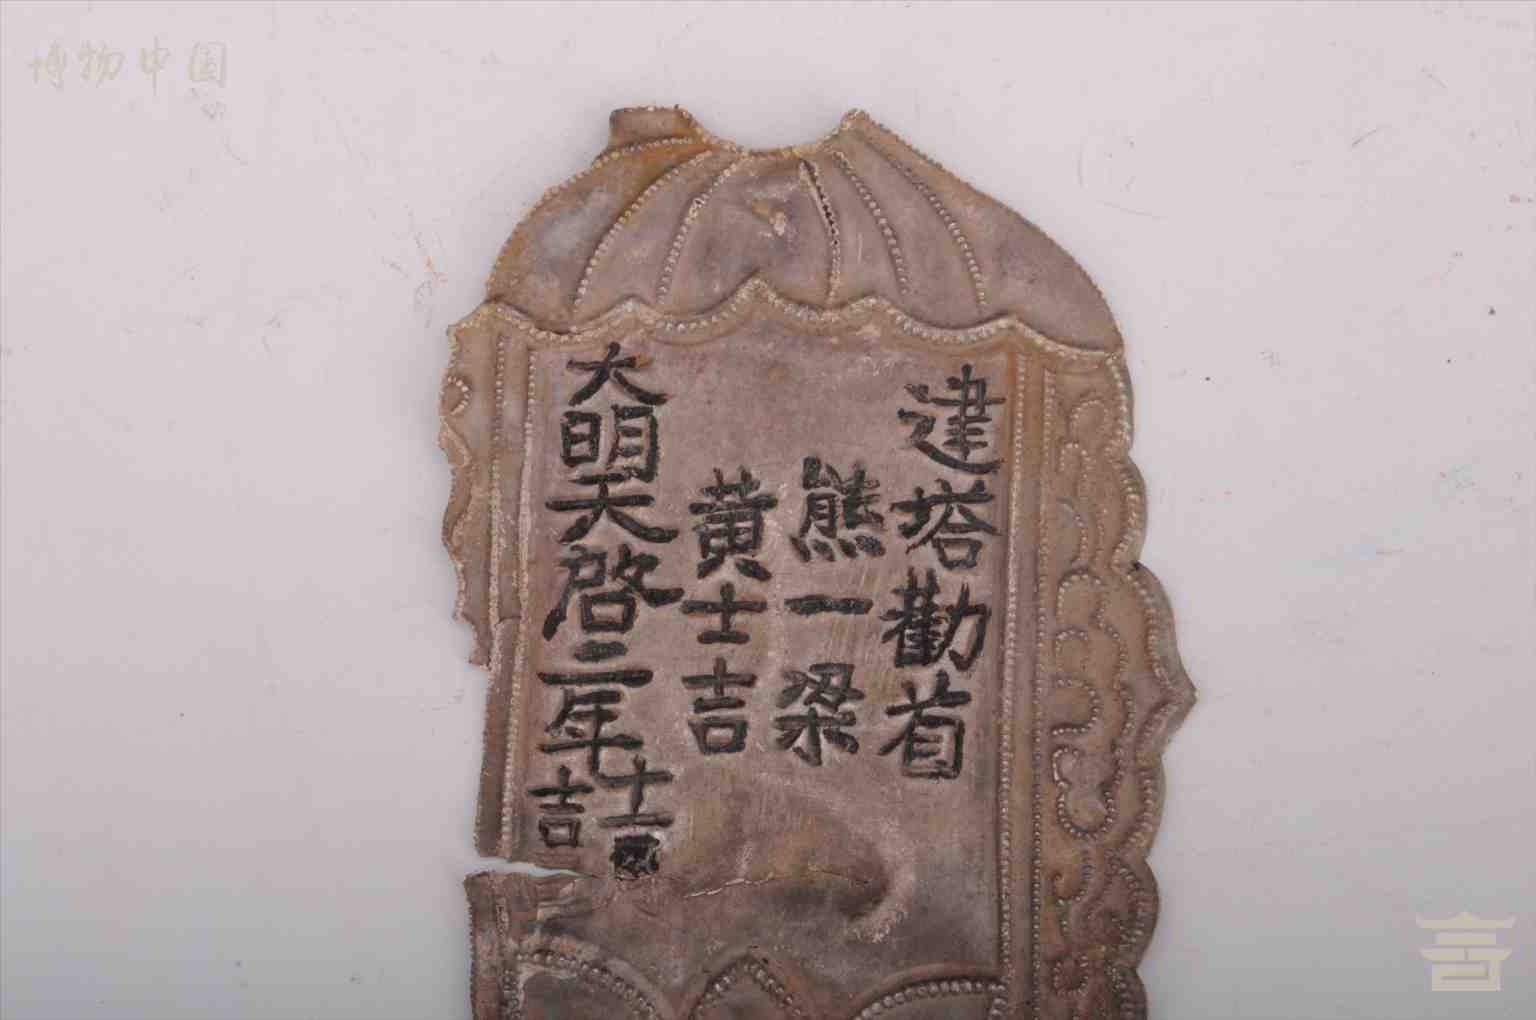 博物中国
建塔勸首
熊一梁
黄士吉
大明天啓二年十二
吉